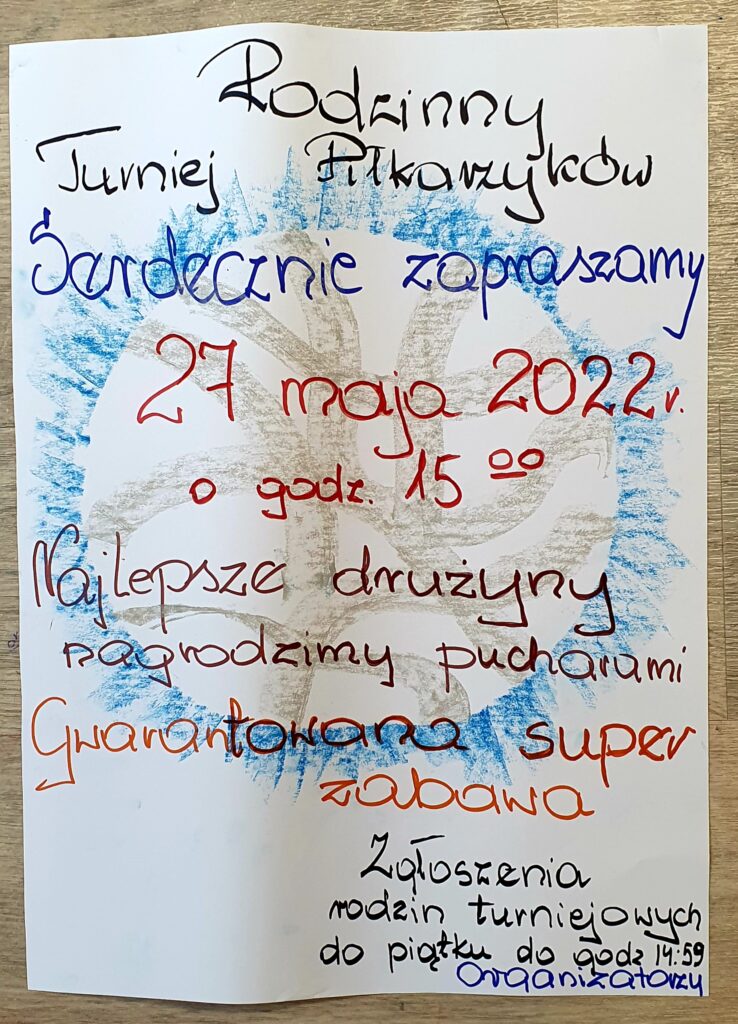 Rodzinny
Turniej Piłkarzyków
Serdecznie zapraszamy
27 maja 2022r.
o godz. 15 00
Najlepsze drużyny
nagrodzimy pucharami
Gwarantowana super
zabawa
Zgłoszenia
rodzin turniejowych
do piątku do godz 14:59
Organizatorzy